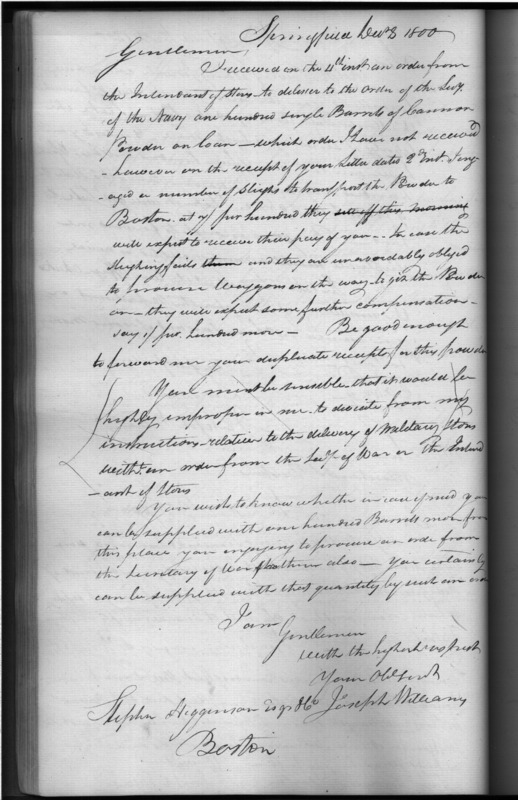 Springfield Decr 3 1800
Gentlemen,
I received on the 4th inst an order from
the Intendant of Stores to deliver to the order of the Secy
of the Navy one hundred single Barrels of Cannon
Powder on loan – which order I have not received
– however on the receipt of your letter dated 2d Inst I eng
aged a number of Sleighs to transport the Powder to
Boston at pr hundred they set off this morning
will expect to receive their pay of you – In case the
sleighing fails them and they are unavoidably obliged
to procure Waggons on the way to git the Powder
on – they will expect some further compensation –
say pr. hundred more – Be good enough
to forward me your duplicate receipts for this powder
You must be sensible that it would be
highly improper in me to deviate from my
instructions relative to the delivery of Military Stores
witht. an order from the Secy. of War or the Intend
– ant of Stores
You wish to know whether in case you
can be supplied with one hundred Barrels more from
this place you engaging to procure an order from
the Secretary of War for them also – You certainly
can be supplied with that quantity by such an
I am
Gentlemen
with the highest respect
Your Obt Servt
Stephn Higginson Esqr & Co Joseph Williams
Boston